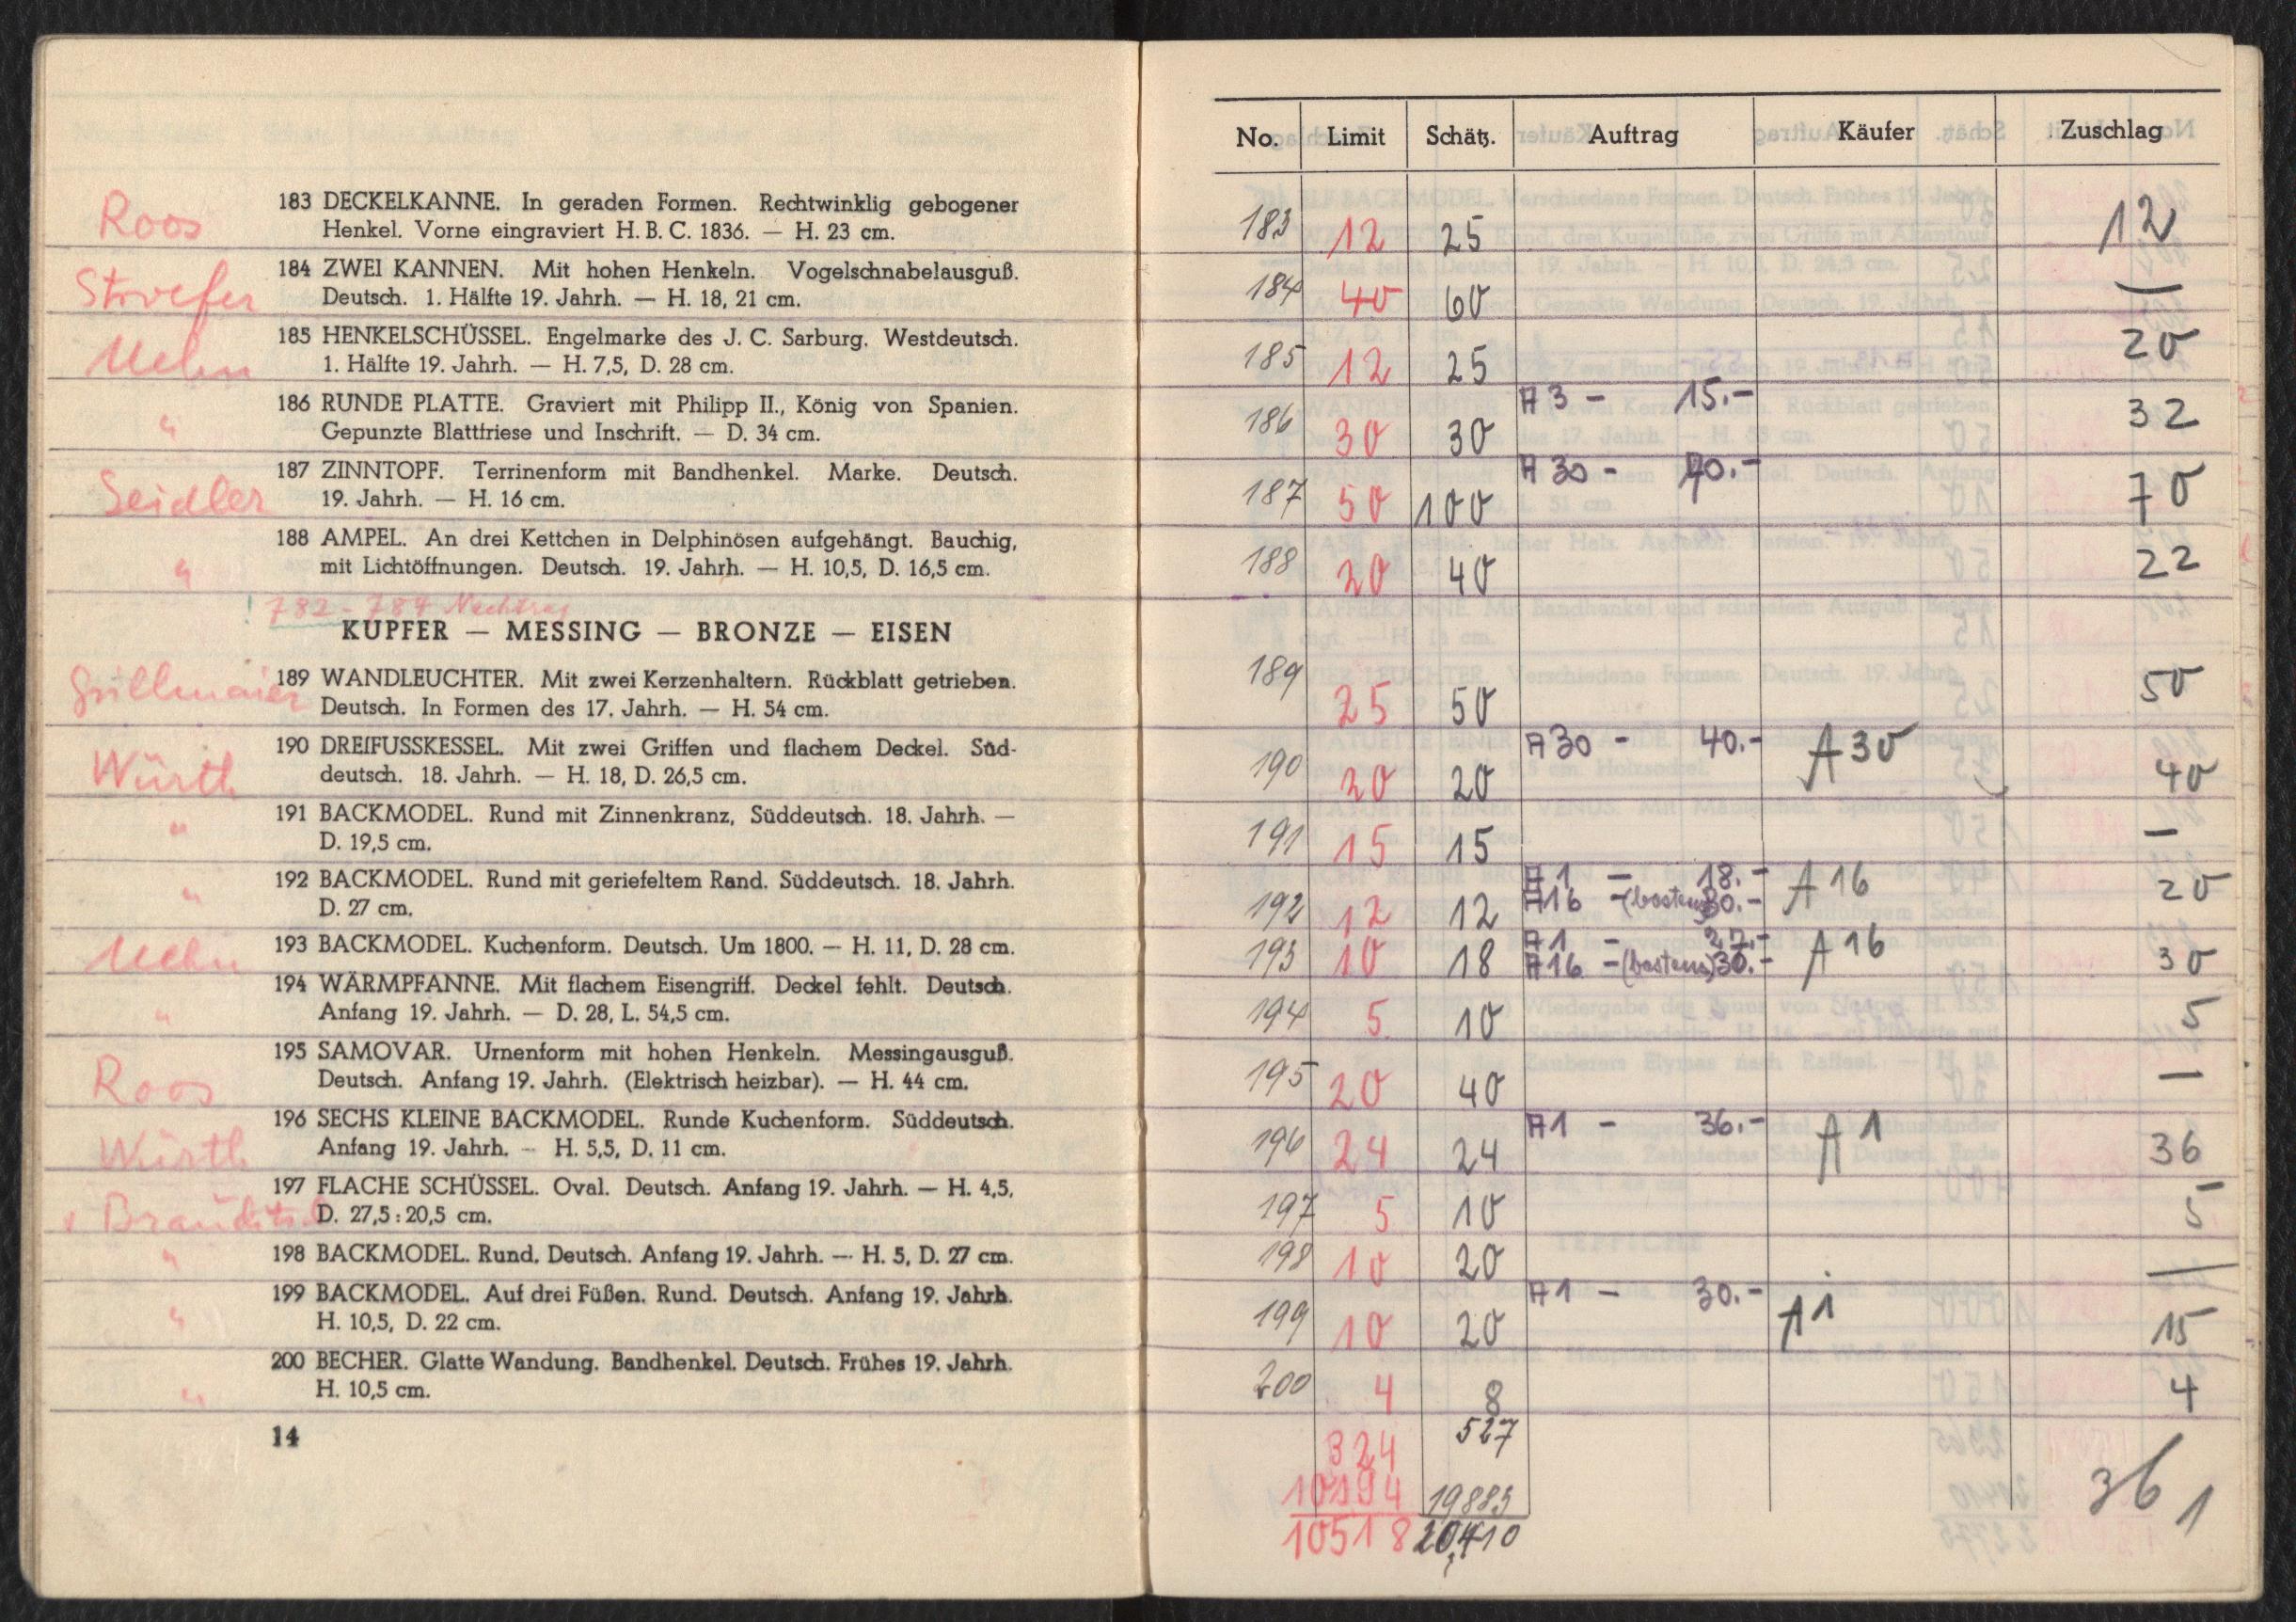 Roos
183 DECKELKANNE. In geraden Formen. Rechtwinklig gebogener
Henkel. Vorne eingraviert H. B. C. 1836. — H. 23 cm.
184 ZWEI KANNEN. Mit hohen Henkeln. Vogelschnabelausguß.
Deutsch. 1. Hälfte 19. Jahrh. — H. 18, 21 cm.
185 HENKELSCHÜSSEL. Engelmarke des J. C. Sarburg. Westdeutsch.
1. Hälfte 19. Jahrh. — H. 7,5, D. 28 cm.
"
186 RUNDE PLATTE. Graviert mit Philipp II., König von Spanien.
Gepunzte Blattfriese und Inschrift. — D. 34 cm.
Seidler
187 ZINNTOPF. Terrinenform mit Bandhenkel. Marke. Deutsch.
19. Jahrh. — H. 16 cm.
"
188 AMPEL. An drei Kettchen in Delphinösen aufgehängt. Bauchig,
mit Lichtöffnungen. Deutsch. 19. Jahrh. — H. 10,5, D. 16,5 cm.
! 782 - 784 Nachtrag
KUPFER — MESSING — BRONZE — EISEN
Grillmaier
189 WANDLEUCHTER. Mit zwei Kerzenhaltern. Rückblatt getrieben.
Deutsch. In Formen des 17. Jahrh. — H. 54 cm.
Würth
190 DREIFUSSKESSEL. Mit zwei Griffen und flachem Deckel. Süd-
deutsch. 18. Jahrh. — H. 18, D. 26,5 cm.
"
191 BACKMODEL. Rund mit Zinnenkranz, Süddeutsch. 18. Jahrh. —
D. 19,5 cm.
"
192 BACKMODEL. Rund mit geriefeltem Rand. Süddeutsch. 18. Jahrh.
D. 27 cm.
193 BACKMODEL. Kuchenform. Deutsch. Um 1800. — H. 11, D. 28 cm.
"
194 WÄRMPFANNE. Mit flachem Eisengriff. Deckel fehlt. Deutsch.
Anfang 19. Jahrh. — D. 28, L. 54,5 cm.
Roos
195 SAMOVAR. Urnenform mit hohen Henkeln. Messingausguß.
Deutsch. Anfang 19. Jahrh. (Elektrisch heizbar). — H. 44 cm.
Würth
196 SECHS KLEINE BACKMODEL. Runde Kuchenform. Süddeutsch.
Anfang 19. Jahrh. — H. 5,5, D. 11 cm.
197 FLACHE SCHÜSSEL. Oval. Deutsch. Anfang 19. Jahrh. — H. 4,5,
D. 27,5 : 20,5 cm.
"
198 BACKMODEL. Rund. Deutsch. Anfang 19. Jahrh. — H. 5, D. 27 cm.
"
199 BACKMODEL. Auf drei Füßen. Rund. Deutsch. Anfang 19. Jahrh.
H. 10,5, D. 22 cm.
"
200 BECHER. Glatte Wandung. Bandhenkel. Deutsch. Frühes 19. Jahrh.
H. 10,5 cm.
14
No. Limit Schätz. Auftrag Käufer Zuschlag
183 12 25 12
184 40 60 —
185 12 25 20
186 30 30 A 3 - 15.- 32
187 50 100 A 30 - 70.- 70
188 20 40 22
189 25 50 50
190 20 20 A 30 - 40.- A 30 40
191 15 15 —
A 1 - 18.-
192 12 12 A 16 - (bestens) 30.- A 16 20
A 1 - 27.-
193 10 18 A 16 - (bestens) 30.- A 16 30
194 5 10 5
195 20 40 —
196 24 24 A 1 - 36.- A 1 36
197 5 10 5
198 10 20 —
199 10 20 A 1 - 30.- A 1 15
200 4 8 4
324 527
10194 19883
10518 20,410
361